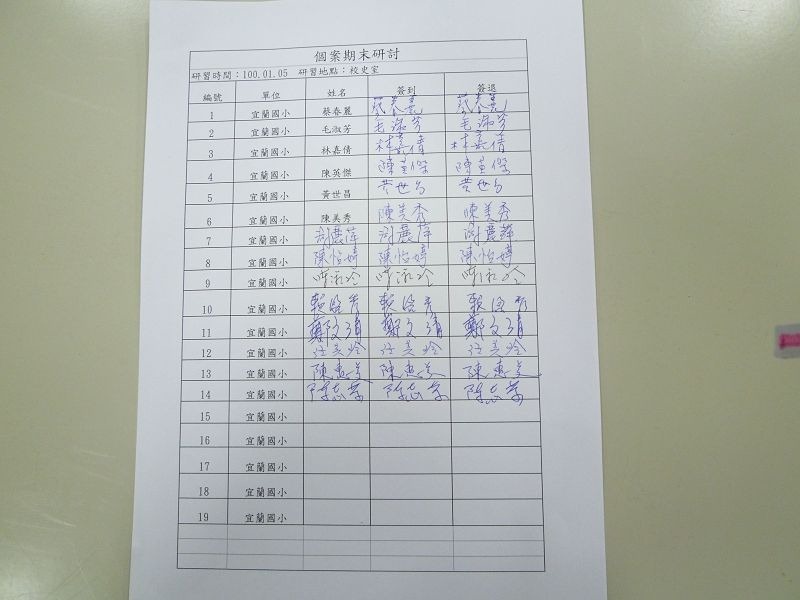 個案期末研討
研習時間：100.01.05 研習地點：校史室
編號 單位 姓名 簽到 簽退
1 宜蘭國小 蔡春麗 蔡春麗 蔡春麗
2 宜蘭國小 毛淑芳 毛淑芳 毛淑芳
3 宜蘭國小 林嘉倩 林嘉倩 林嘉倩
4 宜蘭國小 陳英傑 陳英傑 陳英傑
5 宜蘭國小 黃世昌 黃世昌 黃世昌
6 宜蘭國小 陳美秀 陳美秀 陳美秀
7 宜蘭國小 謝麗萍 謝麗萍 謝麗萍
8 宜蘭國小 陳怡婷 陳怡婷 陳怡婷
9 宜蘭國小
10 宜蘭國小
11 宜蘭國小 鄭文靖 鄭文靖 鄭文靖
12 宜蘭國小 江美玲 江美玲 江美玲
13 宜蘭國小 陳惠美 陳惠美 陳惠美
14 宜蘭國小 陳志榮 陳志榮 陳志榮
15 宜蘭國小
16 宜蘭國小
17 宜蘭國小
18 宜蘭國小
19 宜蘭國小